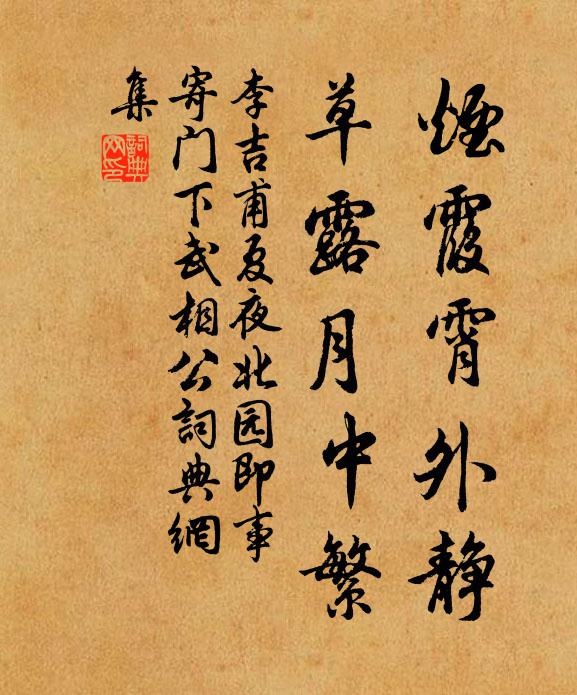 煙霞霄外静
草露月中繁
李吉甫夏夜北园即事
寄门下武相公詞典網
集
詞典
网印